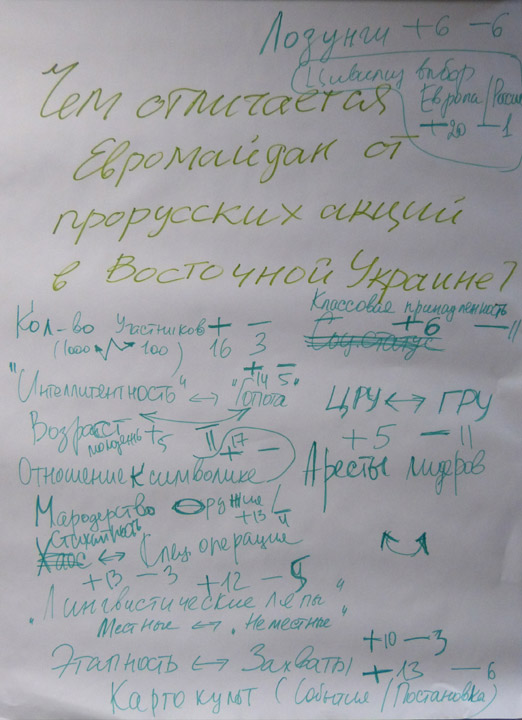 Лозунги +6 −6
Цивилиз выбор
Европа/Россия
+20 −1
Чем отличается
Евромайдан от
прорусских акций
в Восточной Украине?
Классовая принадлежность
+6 − 11
Кол-во участников + −
(1000 ↔ 100) 16 3
+14 5−
"Интеллигентность" ↔ "Гопота"
ЦРУ ↔ ГРУ
+5 − 11
Возраст
молодежь +5 − 11
+17 −
Отношение к символике
Аресты лидеров
Мародерство Оружие
+13 − 11
Стихийность
Хаос ↔ Спец. операции
+13 −3 +12 −5
"Лингвистические ляпы"
Местные ↔ "Неместные"
+10 −3
Этапность ↔ Захваты +13 −6
Карго культ (События/Постановка)